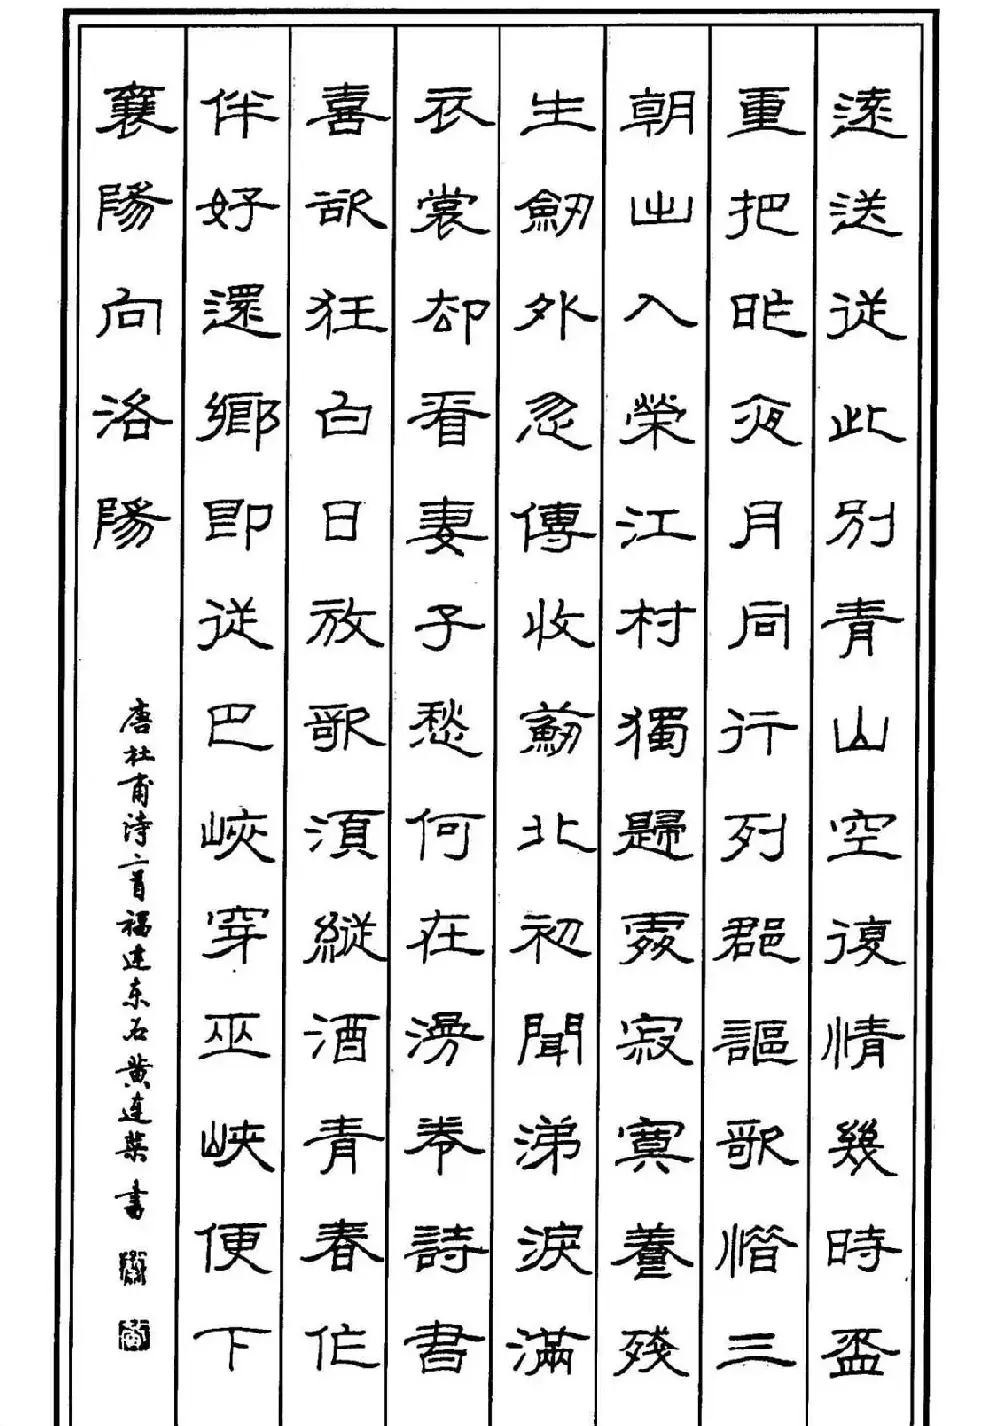 遠送従此別青山空復情幾時盃
重把昨夜月同行列郡謳歌惜三
朝出入榮江村獨歸處寂寞養殘
生劒外忽傳收薊北初聞涕淚滿
衣裳却看妻子愁何在漫卷詩書
喜欲狂白日放歌須縦酒青春作
伴好還鄉即従巴峽穿巫峽便下
襄陽向洛陽
唐杜甫诗二首福建东石黄连荣書